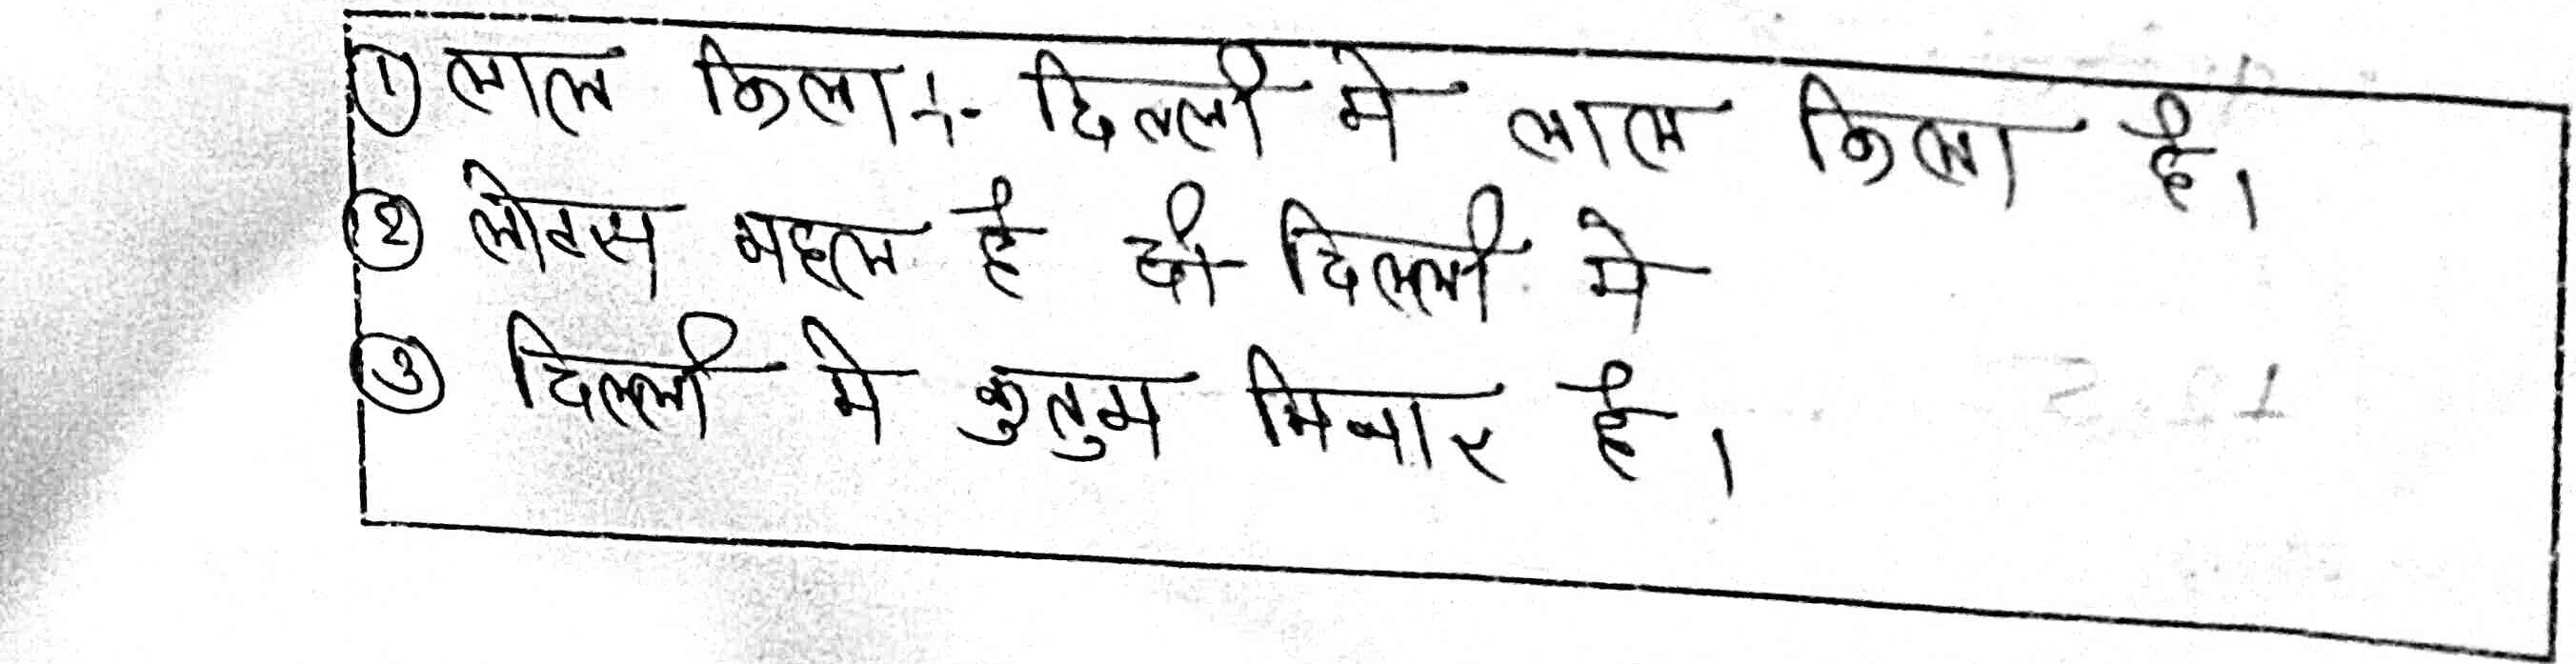 ① लाल किला :- दिल्ली मे लाल किला है।
② लोटस महल है दी दिल्ली मे
③ दिल्ली मे कुतुम मिनार है।